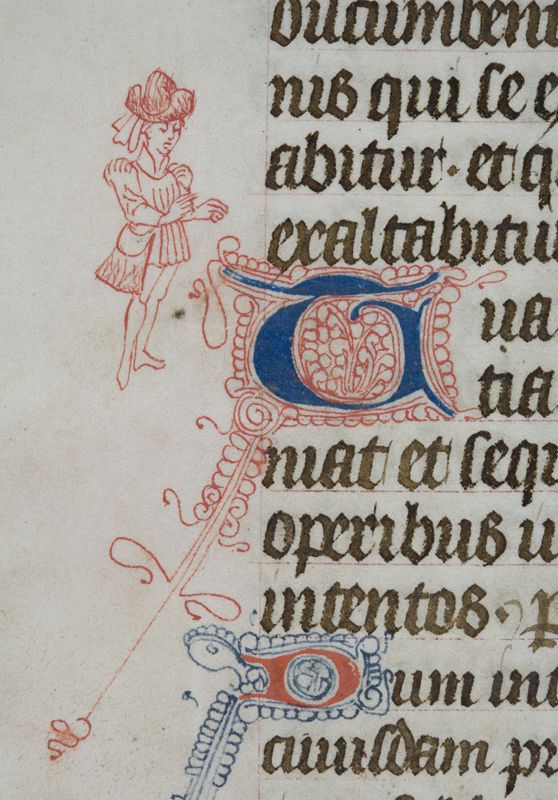 discumbent
nis qui se e
abitur. et q
exaltabitur
Tua
tia
niat et sequ
operibus
intentos.
Cum int
cuiusdam pr